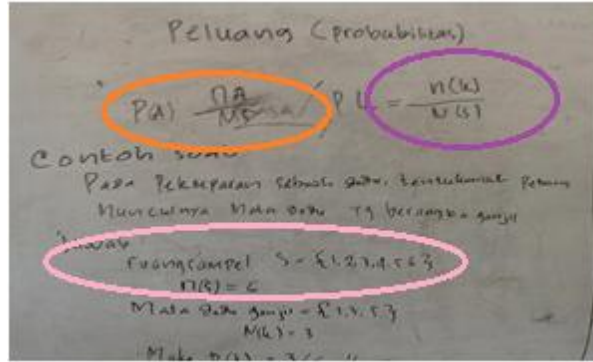 Peluang (probabilitas)
P(A) nA / NS P k = n(k) / N(S)
Contoh soal
Pada Pelemparan sebuah dadu, tentukanlah Peluang
Munculnya Mata dadu yg berangka ganjil
Jawab
ruang sampel S = {1,2,3,4,5,6}
n(S) = 6
Mata dadu ganjil = {1,3,5}
N(k) = 3
Maka